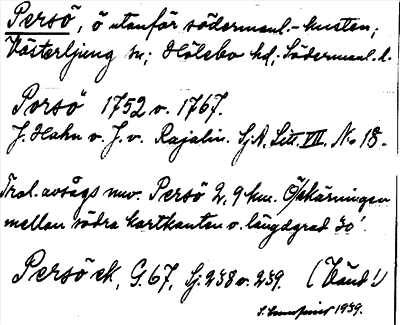 Persö, ö utanför södermanl.-kusten;
Västerljung sn; Hölebo hd; Södermanl. l.
Porsö 1752 o. 1767.
J. Hahn o. J. v. Rajalin. Sj.A. Litt. VIII. No 18.
Trol. avsågs nuv. Persö 2,9 km.
mellan södra kartkanten o. längdgrad 30'.
Persö ek, G. 67, Sj. 238 o. 239. (Vänd!)
1939.